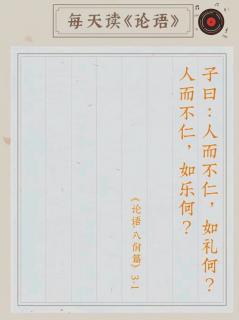 每天读《论语》
子曰：人而不仁，如礼何？
人而不仁，如乐何？
《论语·八佾篇》3·1